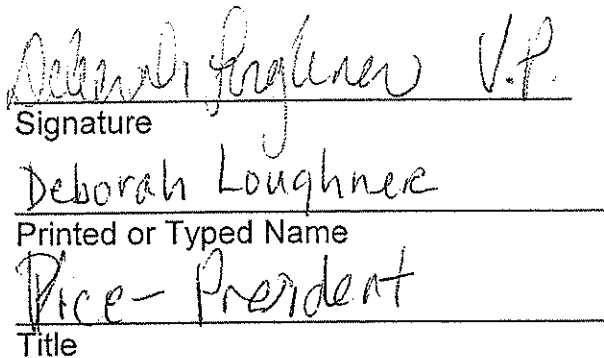 Deborah Loughner V.P.
Signature
Deborah Loughner
Printed or Typed Name
Vice-President
Title